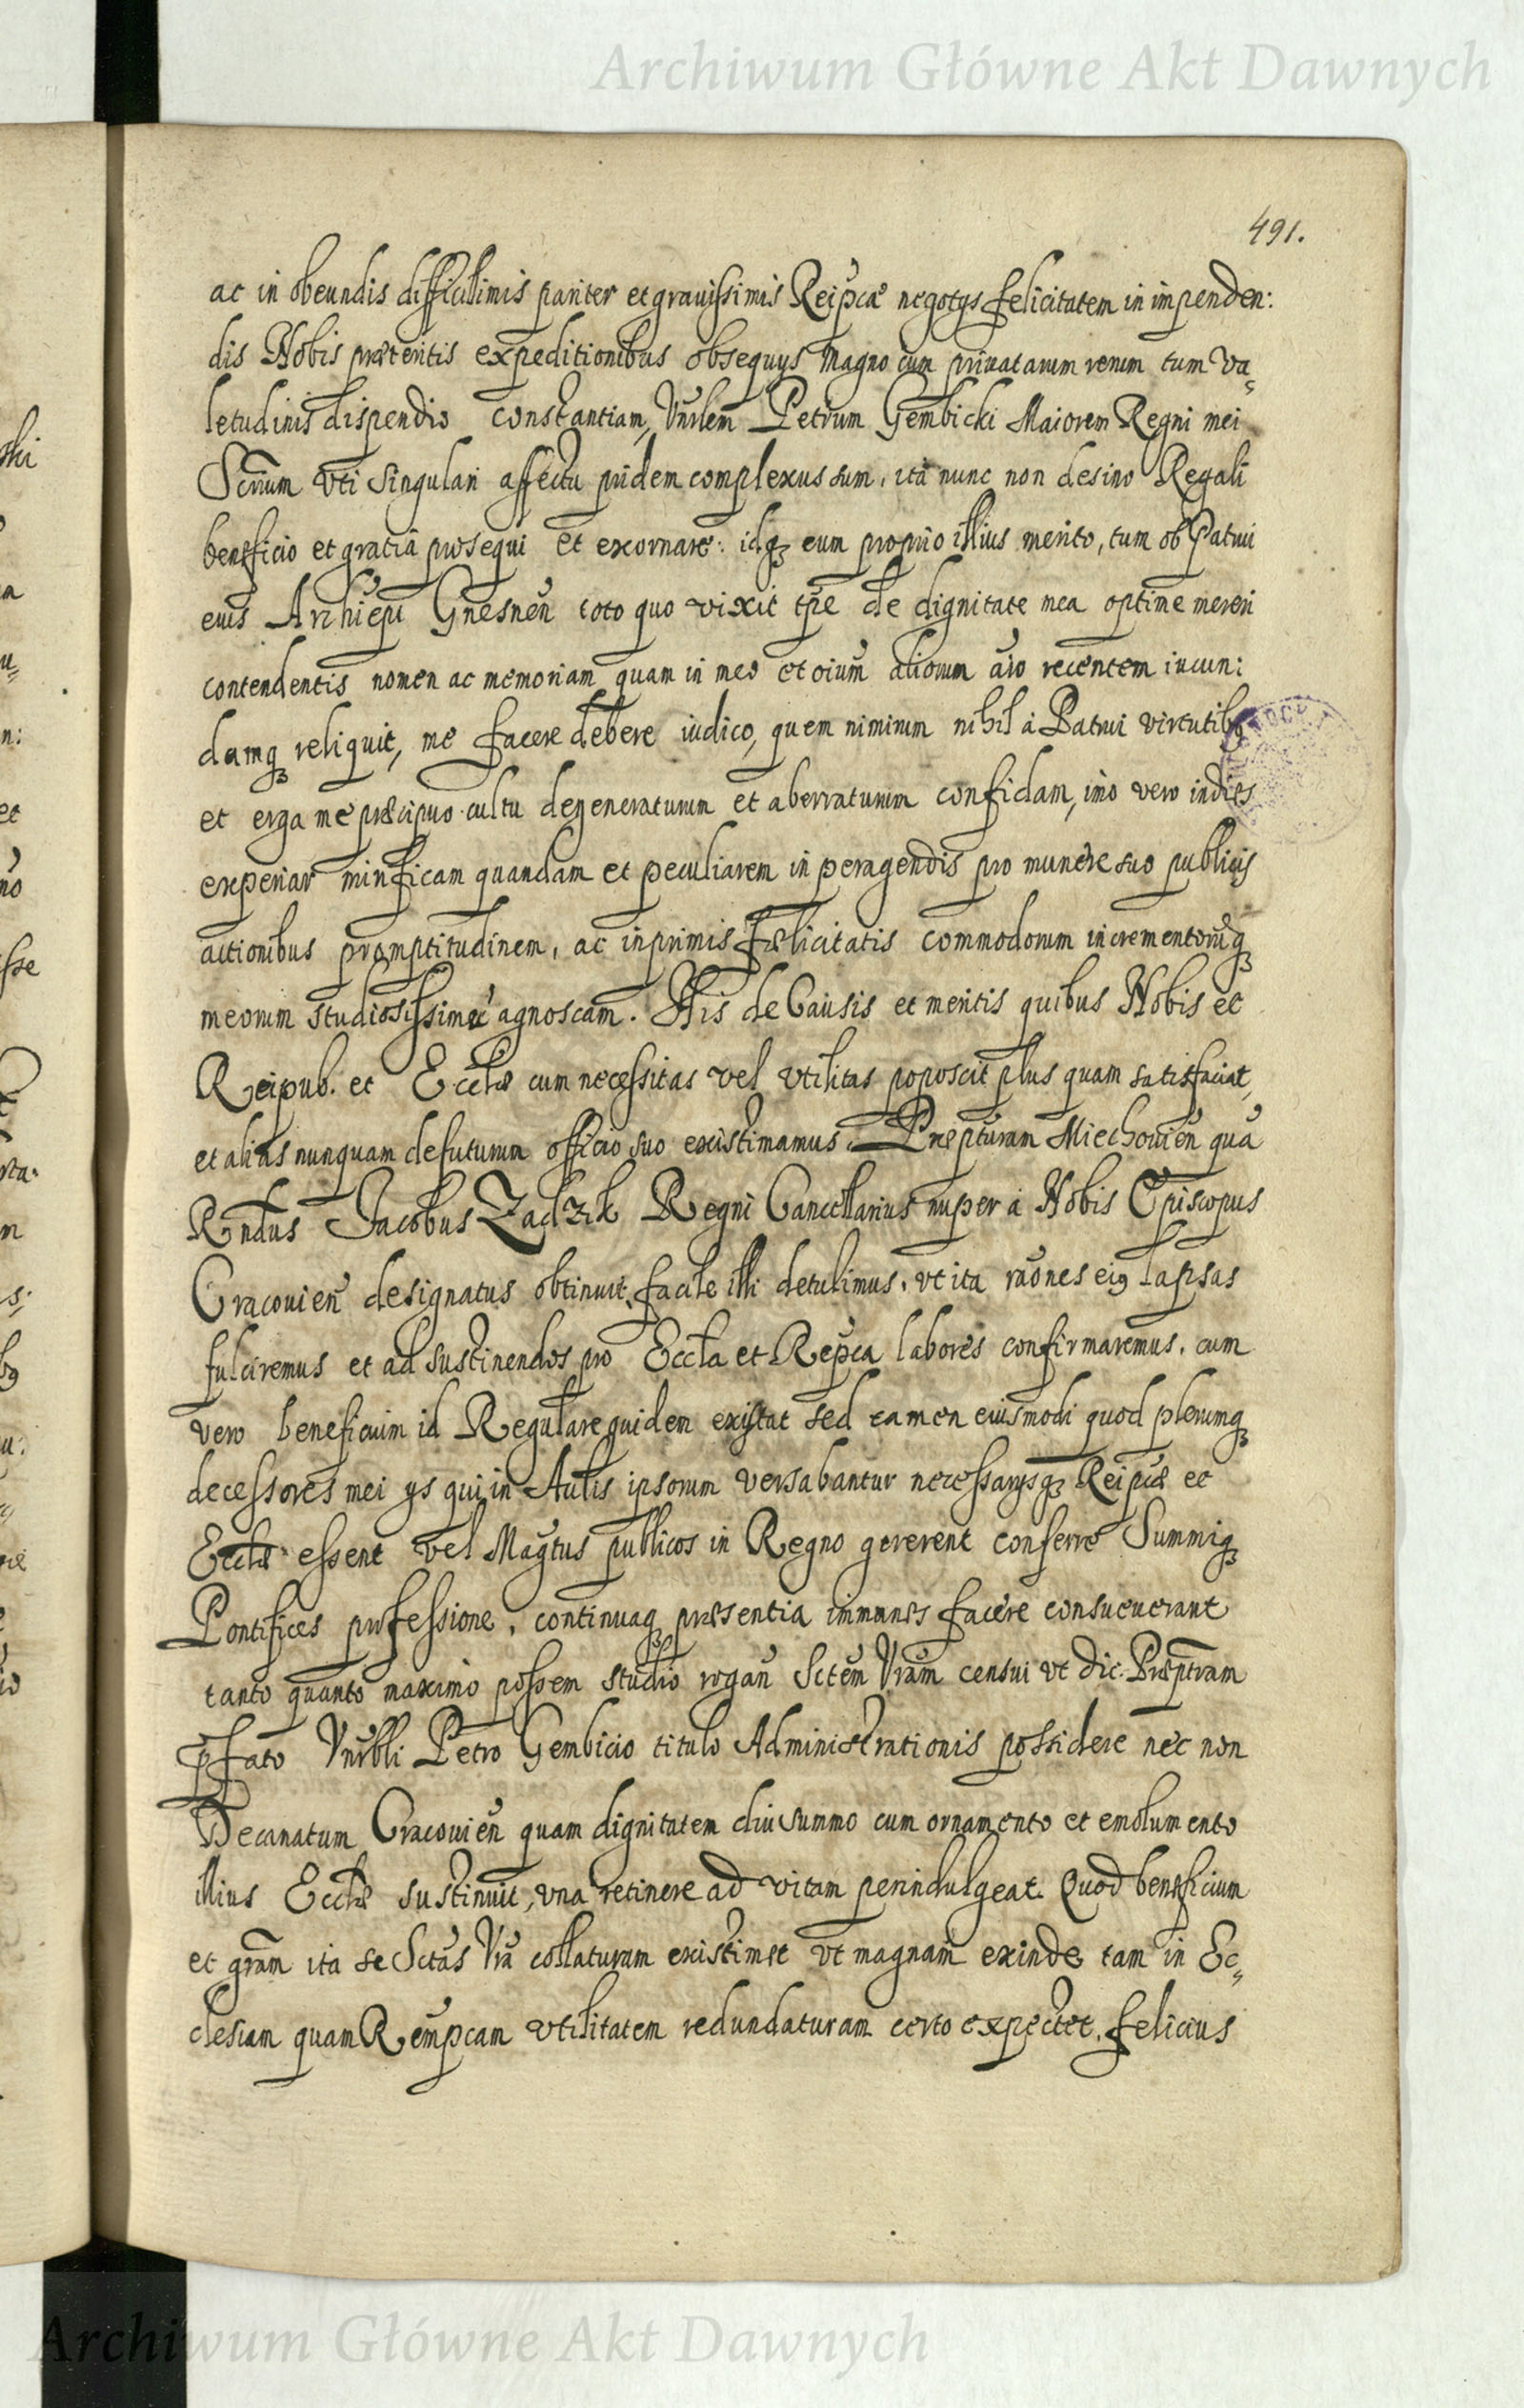 Archiwum Główne Akt Dawnych
491.
ac in obeundis difficilimis pariter et grauissimis Reipcæ negotys felicitatem in impenden:
dis Nobis præteritis expeditionibus obsequys magno cum priuatarum rerum tum va=
letudinis dispendio constantiam, Vnrlem Petrum Gembicki Maiorem Regni mei
Scrium vti singulari affectu pridem complexus sum, ita nunc non desino Regali
beneficio et gratia prosequi et exornare: idq eum proprio illius merito, tum ob Patrui
eius Archiepi Gnesnen toto quo vixit tpe de dignitate mea optime mereri
contendentis nomen ac memoriam quam in meo et oium aliorum aio recentem iucun:
damq reliquit, me facere debere iudico, quem nimirum nihil à Patrui virtutibq
et erga me præcipuo cultu degeneraturum et aberraturum confidam, imo vero indies
experiar mirificam quandam et peculiarem in peragendis pro munere suo publicis
actionibus promptitudinem, ac inprimis fælicitatis commodorum incrementorūq
meorum studiosissimū agnoscam. His de Causis et meritis quibus Nobis et
Reipub. et Eccliæ cum necessitas vel vtilitas poposcit plus quam satisfaciat,
et alias nunquam defuturum officio suo existimamus. Præpturam Miechouien quā
Rndus Jacobus Zadzik Regni Cancellarius nuper à Nobis Episcopus
Cracouien designatus obtinuit, facile illi detulimus, vt ita raones ei9 lapsas
fulciremus et ad sustinendos pro Eccla et Repca labores confirmaremus. cum
vero beneficium id Regulare quidem existat sed tamen eiusmodi quod plerumq
decessores mei ys qui in Aulis ipsorum versabantur necessarysq Reipcæ et
Eccliæ essent vel Magtus publicos in Regno gererent conferre Summiq
Pontifices professione, continuaq præsentia immunes facere consueuerant
tanto quanto maximo possem studio rogan Sctem Vram censui vt dic. Præptram
pfato Vnrbli Petro Gembicio titulo Administrationis possidere nec non
Decanatum Cracouien quam dignitatem diu summo cum ornamento et emolumento
illius Eccliæ sustinuit, vna retinere ad vitam perindulgeat. Quod beneficium
et gram ita se Sctas Vra collaturam existimet vt magnam exinde tam in Ec=
clesiam quam Rempcam vtilitatem redundaturam certo expectet. felicius
Archiwum Główne Akt Dawnych